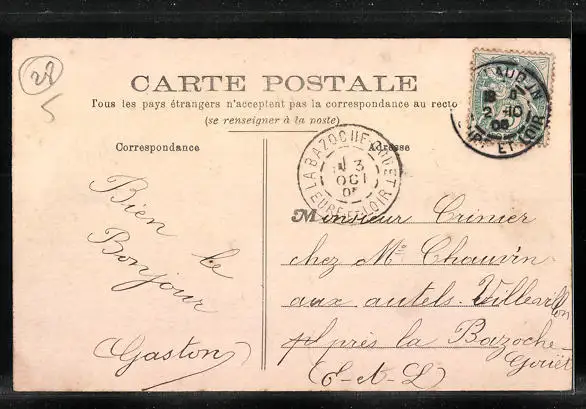 28
CARTE POSTALE
Tous les pays étrangers n'acceptent pas la correspondance au recto
(se renseigner à la poste)
Correspondance
Adresse
LA BAZOCHE-GOUET
3
OCT
05
EURE-ET-LOIR
2-10
EURE-ET-LOIR
Bien le
Bonjour
Gaston
Monsieur Crinier
chez Mr Chauvin
aux autels-Villevillon
pl près la Bazoche-
Gouët
(E-A-L)